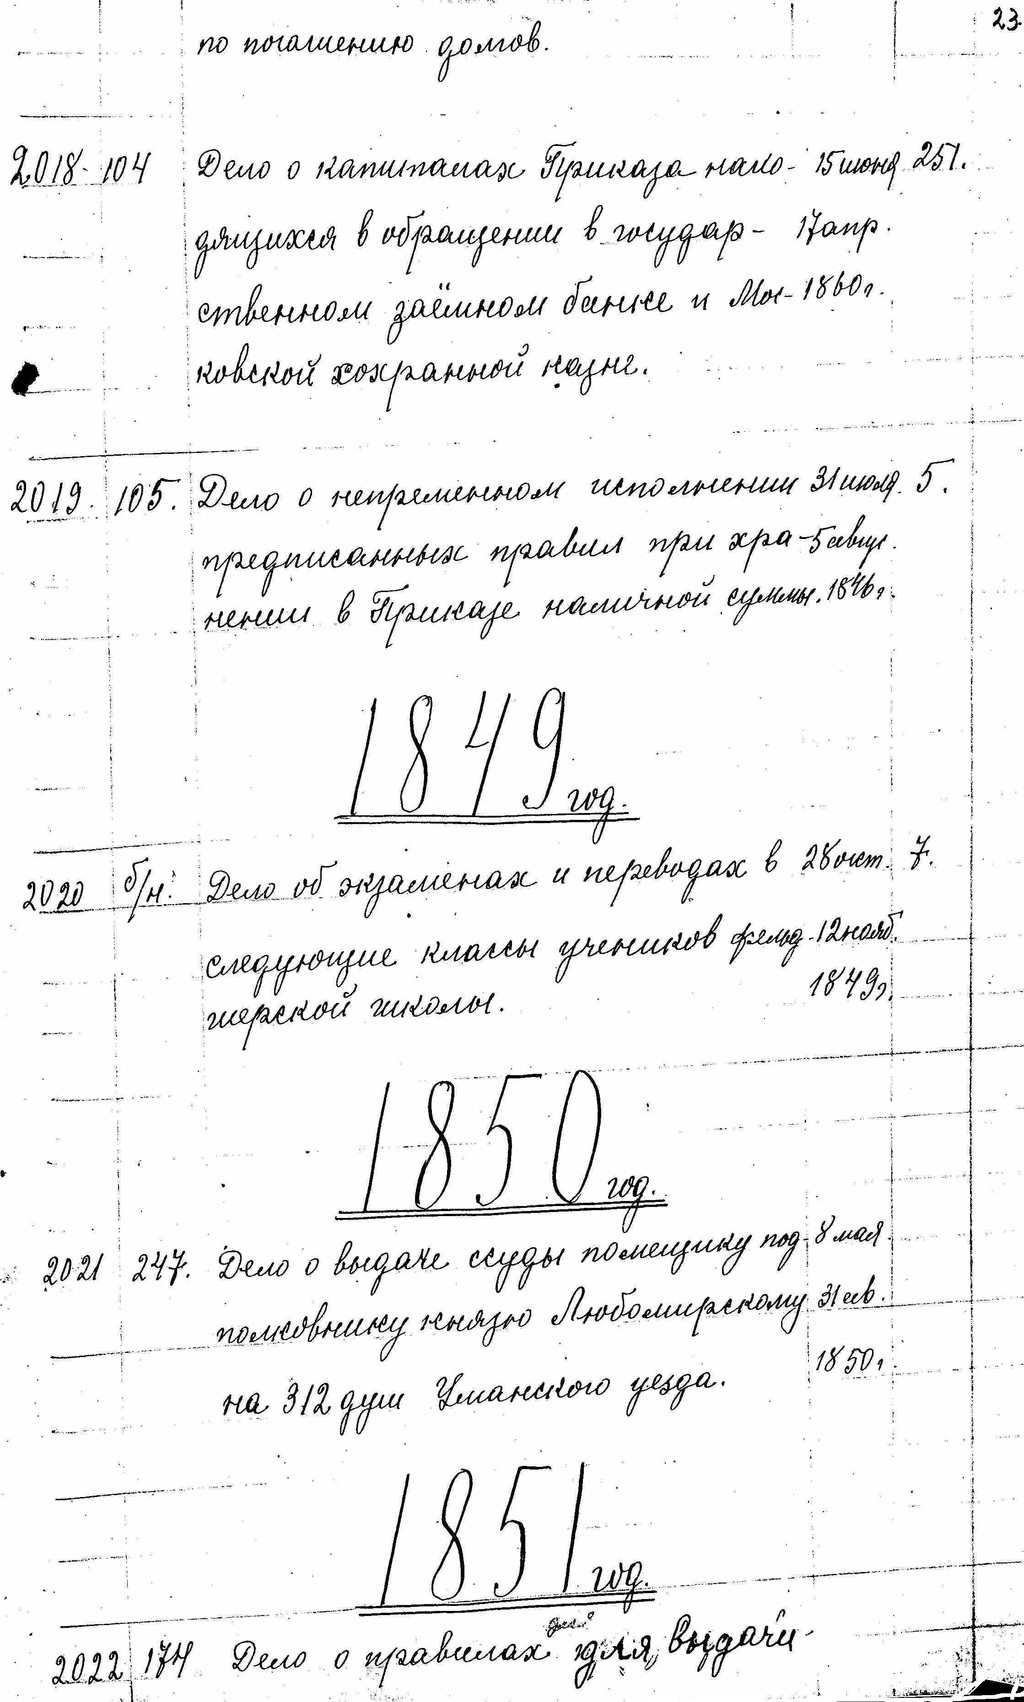 23.
по погашению долгов.
2018- 104 Дело о капиталах Приказа нахо- 15 июня 251.
дящихся в обращении в государ- 17 апр.
ственном заёмном банке и Мос- 1860г.
ковской сохранной казне.
2019. 105. Дело о непременном исполнении 31 июля. 5.
предписанных правил при хра- 5 авгус.
нении в Приказе наличной суммы. 1846г.
1849 год.
2020 б/н. Дело об экзаменах и переводах в 28 окт. 7.
следующие классы учеников фельд- 12 нояб.
шерской школы. 1849г.
1850 год.
2021 247. Дело о выдаче ссуды помещику под- 8 мая
полковнику князю Любомирскому 31 ав.
на 312 душ Уманского уезда. 1850г.
1851 год.
2022 174 Дело о правилах для выдачи